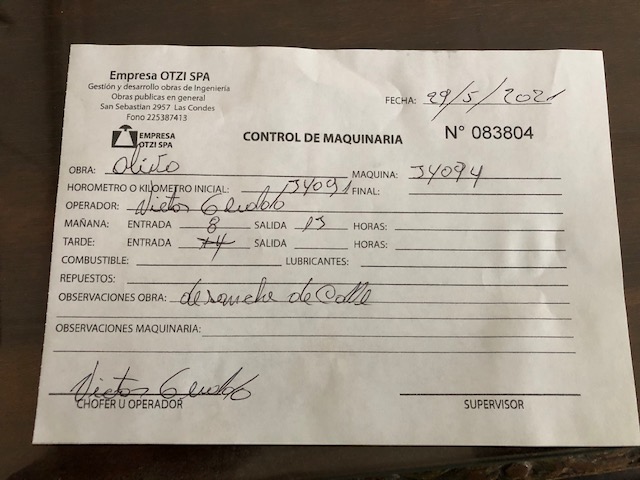 Empresa OTZI SPA
Gestión y desarrollo obras de Ingeniería
Obras publicas en general
San Sebastian 2957 Las Condes
Fono 225387413
FECHA: 29/5/2021
EMPRESA
OTZI SPA
CONTROL DE MAQUINARIA
N° 083804
OBRA: Olivo MAQUINA:
HOROMETRO O KILOMETRO INICIAL: J4091 FINAL: J4094
OPERADOR: Victor
MAÑANA: ENTRADA 8 SALIDA 13 HORAS:
TARDE: ENTRADA SALIDA HORAS:
COMBUSTIBLE: LUBRICANTES:
REPUESTOS:
OBSERVACIONES OBRA: de Calle
OBSERVACIONES MAQUINARIA:
Victor
CHOFER U OPERADOR
SUPERVISOR